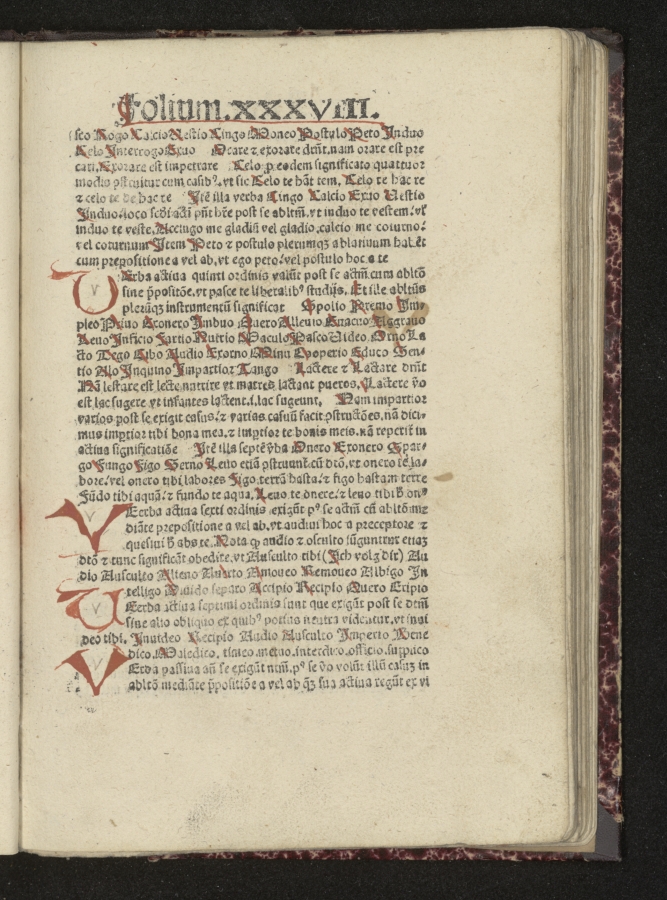 Folium.XXXVIII.
sco Rogo Calcio Vestio Cingo Moneo Postulo Peto Induo
Celo Interrogo Exuo Orare ⁊ exorare drn̄t, nam orare est pre
cari, Exorare est impetrare Celo p eodem significato quattuor
modis ꝯstruitur cum casibꝰ. vt sic Celo te hāc rem, Celo te hac re
⁊ celo te de hac re Itē illa verba Cingo Calcio Exuo Vestio
Induo. loco scdi acti pn̄t hr̄e post se abltm̄. vt induo te vestem. vl
induo te veste. Accingo me gladiū vel gladio. calcio me coturno.
vel coturnum Item Peto ⁊ postulo plerumqꝫ ablatiuum habēt
cum prepositione a vel ab, vt ego peto. vel postulo hoc a te
VErba actiua quinti ordinis volūt post se actm̄ cum abltō
sine p̄positōe. vt pasce te liberalibꝰ studijs. Et ille abltūs
plerūqꝫ instrumentū significat Spolio Premo Im-
pleo Priuo Exonero Imbuo Onero Alleuio Euacuo Aggrauo
Leuo Inficio Fartio Nutrio Maculo Pasco Video. Orno La
cto Tego Cibo Audio Exorno Minu Cooperio Educo Sen-
tio Alo Inquino Impartior Tango Lactere ⁊ Lactare drn̄t
Nā lactare est lacte nutrire vt matres lactant pueros. Lactere v̄o
est lac sugere vt infantes lactent .i. lac sugeunt. Nam impartior
varios post se exigit casus. ⁊ varias casuū facit ꝯstructōes, nā dici-
mus imꝑtior tibi bona mea. ⁊ imꝑtior te bonis meis. nā reperit̄ in
actiua significatiōe Itē illa septē v̄ba Onero Exonero Spar-
go Fungo Figo Serno Leuo etiā ꝯstruunt̄ cū dtō, vt onero te la-
bore. vel onero tibi labores Figo terrā hasta. ⁊ figo hastam terre
Fūdo tibi aquā. ⁊ fundo te aqua. Leuo te onere. ⁊ leuo tibi onꝰ
VErba actiua sexti ordinis exigūt pꝰ se actm̄ cū abltō me
diāte prepositione a vel ab. vt audiui hoc a preceptore ⁊
quesiui abs te. Nota ꝙ audio ⁊ osculto iūguntur etiaꝫ
dtō ⁊ tunc significāt obedire. vt Ausculto tibi (Ich volg dir) Au
dio Ausculto Alieno Aufero Amoueo Remoueo Abigo In
telligo Diuido separo Accipio Recipio Quero Eripio
VErba actiua septimi ordinis sunt que exigūt post se dtm̄
sine alio obliquo ex quibꝰ potius neutra videntur. vt inui
deo tibi. Inuideo Recipio Audio Ausculto Impero Bene
dico. Maledico. timeo. metuo. interdico. officio. suppaco
VErba passiua an̄ se exigūt ntm̄. pꝰ se v̄o volūt illū casuꝫ in
abltō mediāte p̄positiōe a vel ab quē sua actiua regūt ex vi